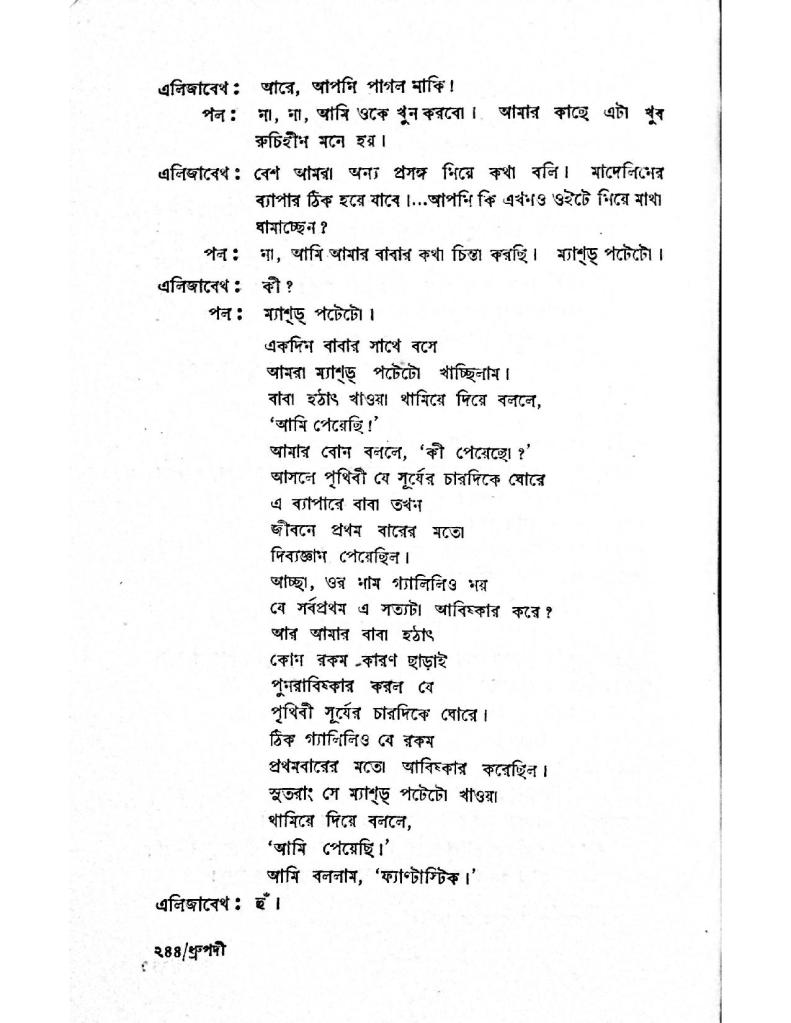 এলিজাবেথ : আরে, আপনি পাগল নাকি !
পল : না, না, আমি ওকে খুন করবো । আমার কাছে এটা খুব
রুচিহীন মনে হয় ।
এলিজাবেথ : বেশ আমরা অন্য প্রসঙ্গ নিয়ে কথা বলি । মাদেলিনের
ব্যাপার ঠিক হয়ে যাবে ।...আপনি কি এখনও ওইটে নিয়ে মাথা
ঘামাচ্ছেন ?
পল : না, আমি আমার বাবার কথা চিন্তা করছি । ম্যাশ্‌ড্‌ পটেটো ।
এলিজাবেথ : কী ?
পল : ম্যাশ্‌ড্‌ পটেটো ।
একদিন বাবার সাথে বসে
আমরা ম্যাশ্‌ড্‌ পটেটো খাচ্ছিলাম ।
বাবা হঠাৎ খাওয়া থামিয়ে দিয়ে বললে,
‘আমি পেয়েছি !’
আমার বোন বললে, ‘কী পেয়েছো ?’
আসলে পৃথিবী যে সূর্যের চারদিকে ঘোরে
এ ব্যাপারে বাবা তখন
জীবনে প্রথম বারের মতো
দিব্যজ্ঞান পেয়েছিল ।
আচ্ছা, ওর নাম গ্যালিলিও নয়
যে সর্বপ্রথম এ সত্যটা আবিষ্কার করে ?
আর আমার বাবা হঠাৎ
কোন রকম কারণ ছাড়াই
পুনরাবিষ্কার করল যে
পৃথিবী সূর্যের চারদিকে ঘোরে ।
ঠিক গ্যালিলিও যে রকম
প্রথমবারের মতো আবিষ্কার করেছিল ।
সুতরাং সে ম্যাশ্‌ড্‌ পটেটো খাওয়া
থামিয়ে দিয়ে বললে,
‘আমি পেয়েছি ।’
আমি বললাম, ‘ফ্যাণ্টাস্টিক ।’
এলিজাবেথ : হুঁ ।
২৪৪/ধ্রুপদী